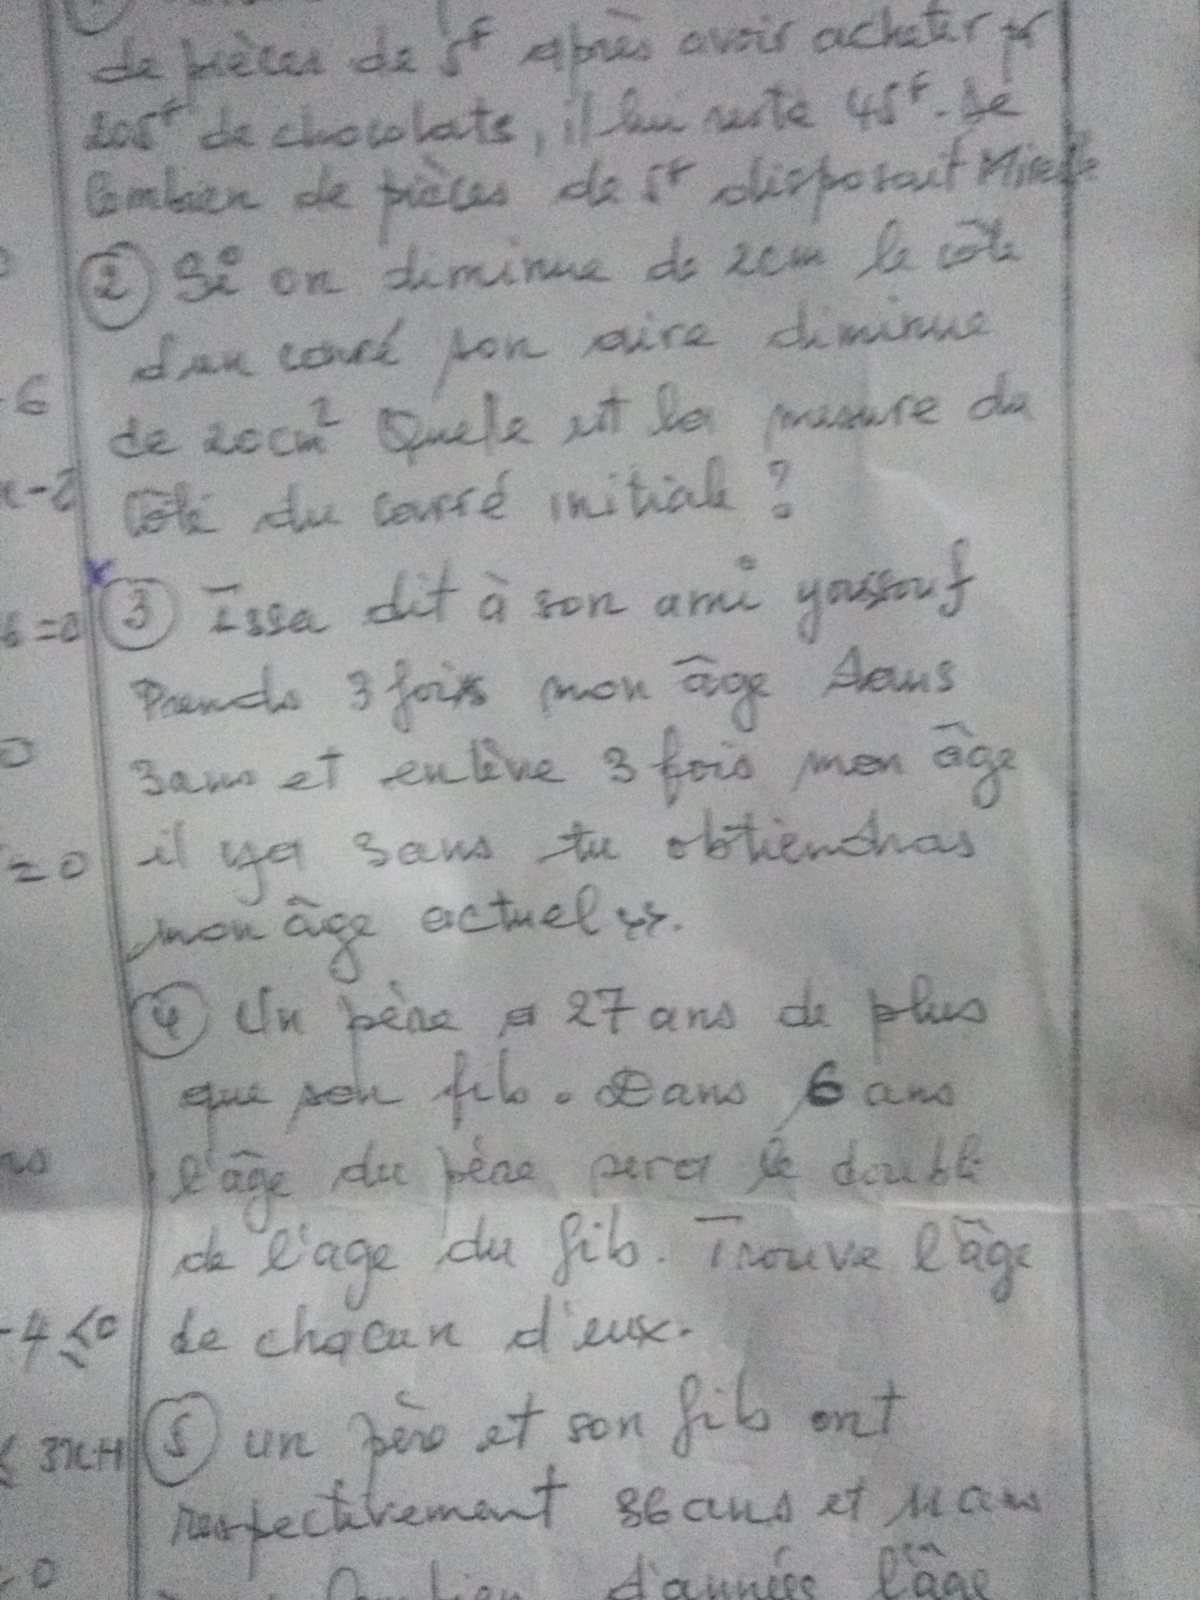 de pièces de 5F après avoir acheter pr
205F de chocolats, il lui reste 45F. De
Combien de pièces de 5F disposait
② Si on diminue de 2cm le côté
d'un carré son aire diminue
de 20cm² Quele est la mesure du
Côté du carré initiale ?
③ Issa dit à son ami yassouf
Prends 3 fois mon âge dans
3ans et enlève 3 fois mon âge
il ya 3ans tu obtiendras
mon âge actuel >>.
④ Un père a 27 ans de plus
que son fils. Dans 6 ans
l'âge du père sera le double
de l'age du fils. Trouve l'âge
de chacun d'eux.
⑤ un père et son fils ont
respectivement 36 ans et 11 ans
Combien d'années l'âge
-6
x-2
6=0
0
=0
ns
-4≤0
≤ 3x+1
0